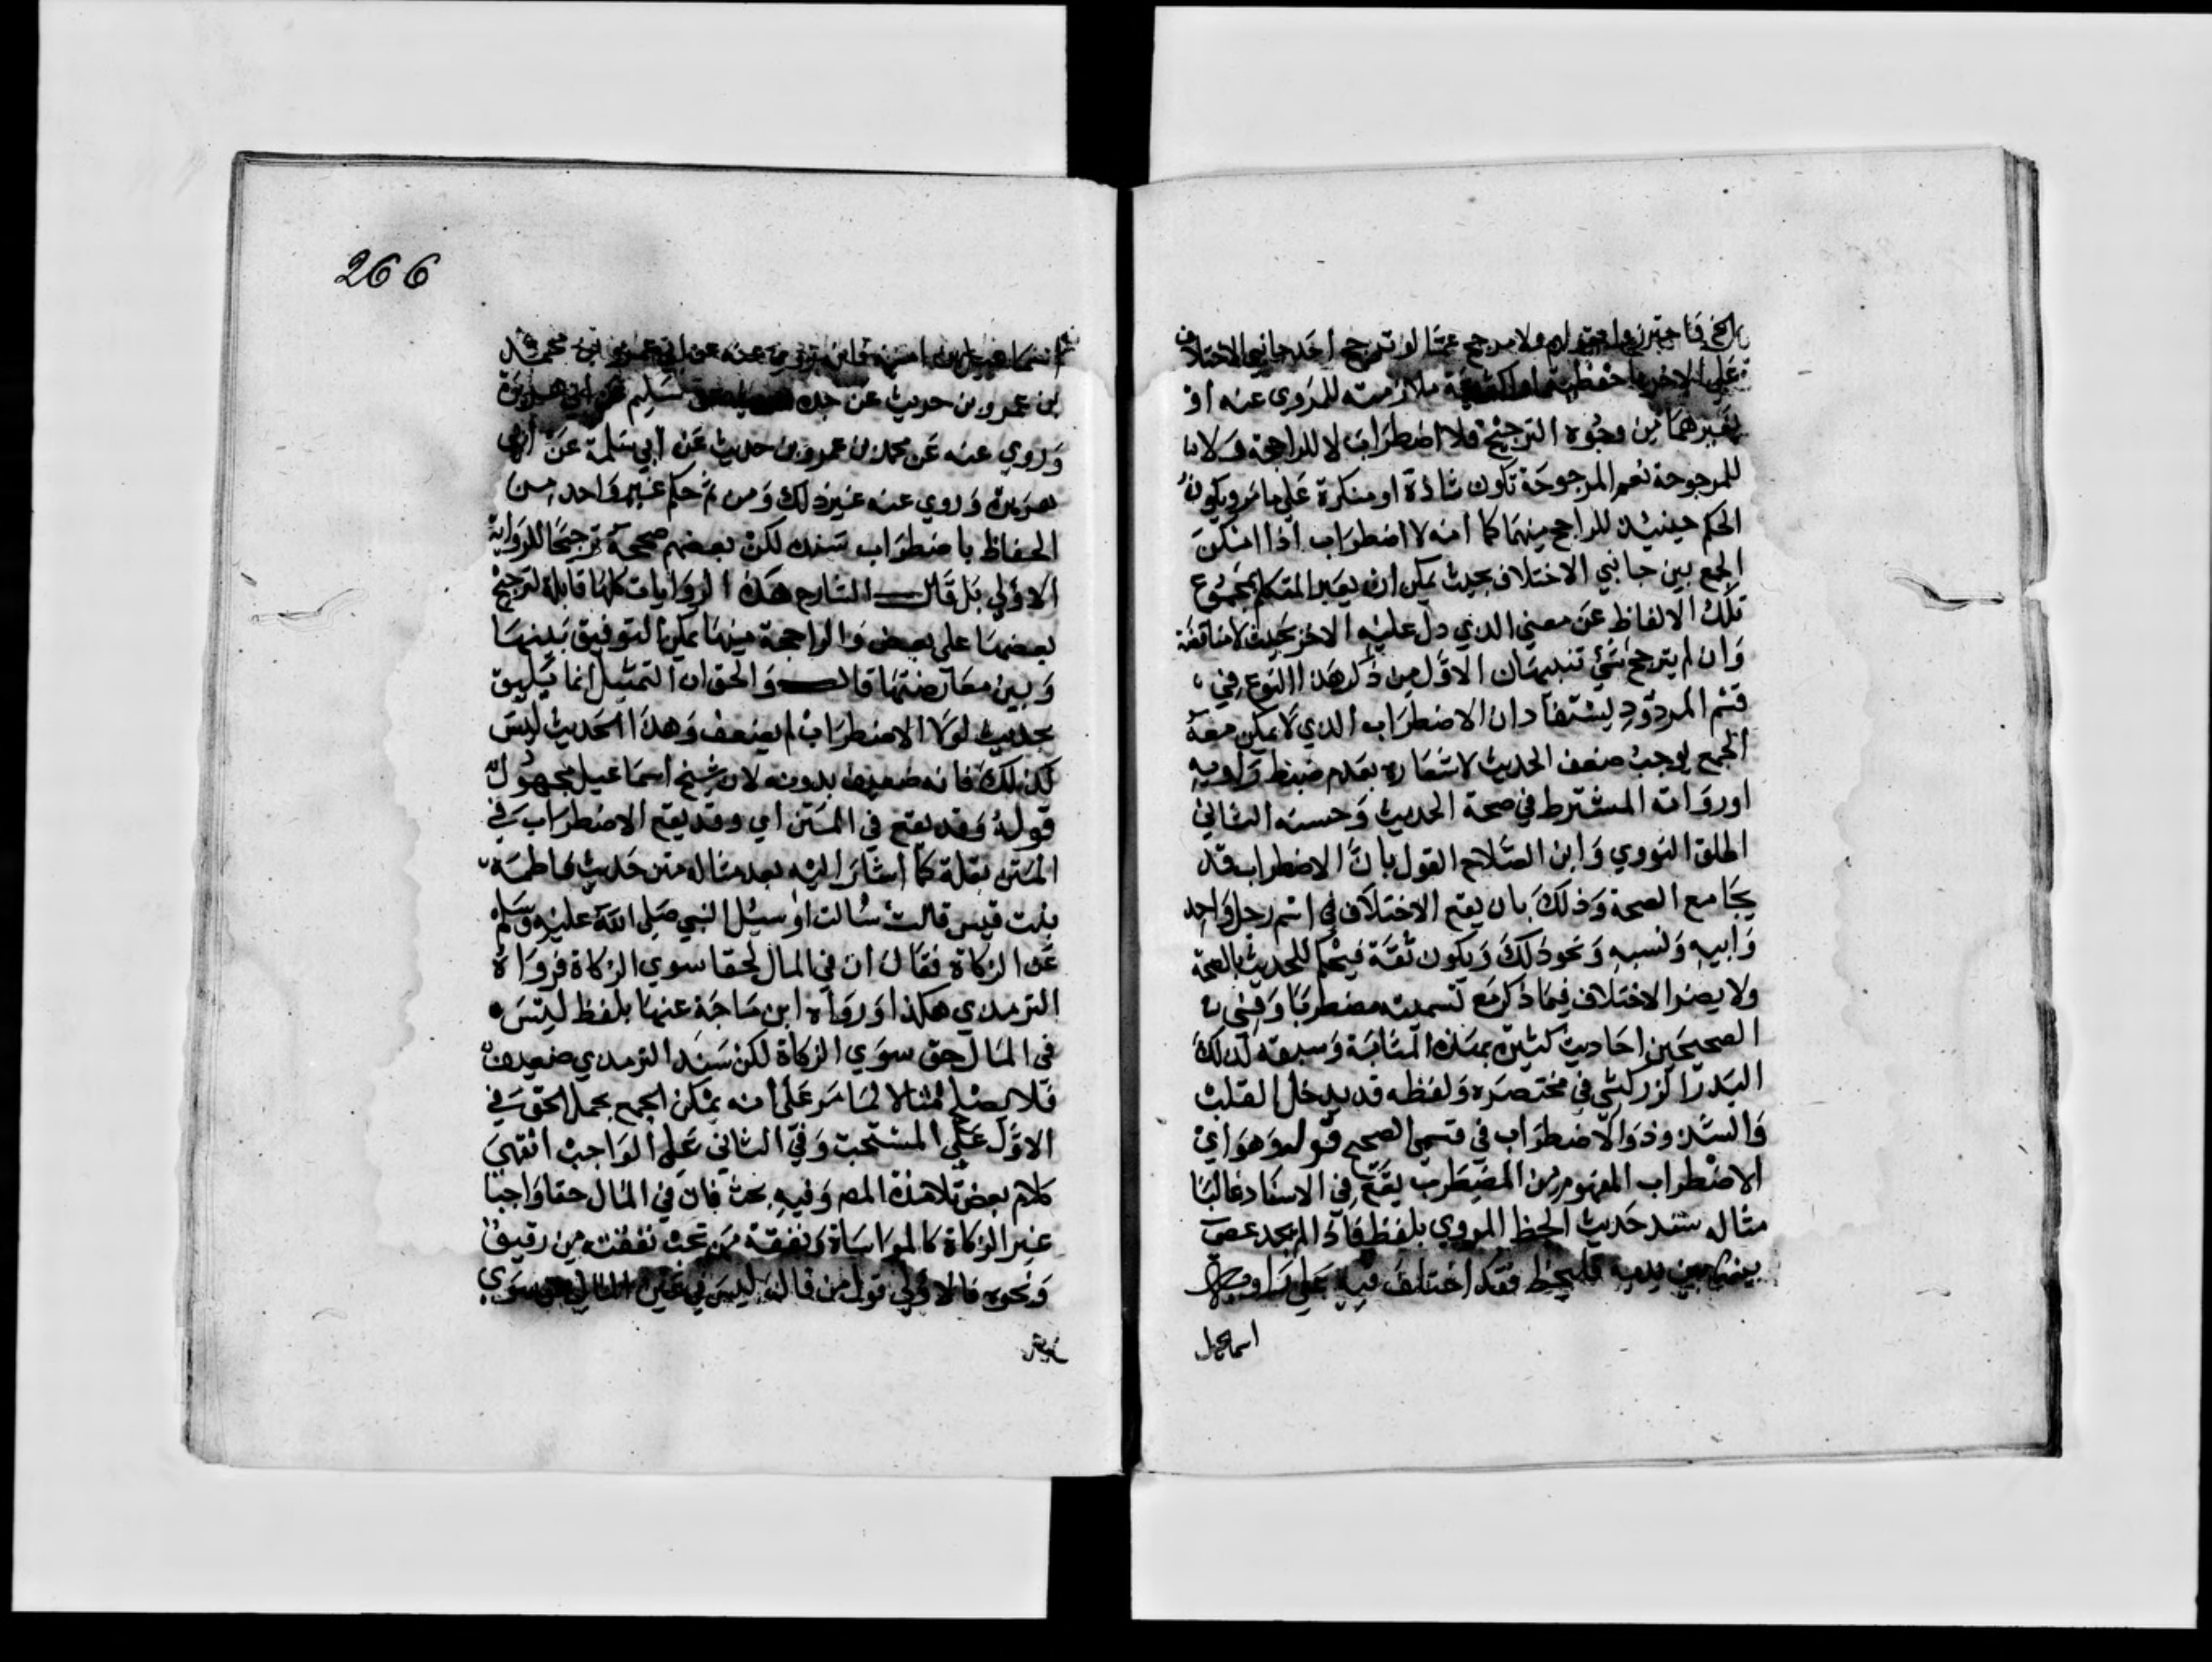 ولا مرجح عما لو ترجح أحد جانبي الاختلاف
على الاخر ملازمته للمروى عنه او
بغيرهما من وجوه الترجيح فلا اضطراب لا للراجحة ولا
للمرجوحة نعم المرجوحة تكون شاذة او منكرة على ما مر ويكون
الحكم حينيئذ للراجح منهما كما انه لا اضطراب اذا امكن
الجمع بين جانبي الاختلاف بحيث يمكن ان يعبر المتكلم بمجموع
تلك الالفاظ عن معني الذي دل عليه الاخر بحيث لا مناقضة
وان لم يترجح شئ تنبيهان الاول من ذكر هذا النوع في
قسم المردود يستفاد ان الاضطراب الذي لا يمكن معه
الجمع يوجب ضعف الحديث لاشعاره بعدم ضبط راويه
او رواته المشترط في صحة الحديث وحسنه الثاني
اطلق النووي وابن الصلاح القول بان الاضطراب قد
يجامع الصحة وذلك بان يقع الاختلاف في اسم رجل واحد
وابيه ونسبه ونحو ذلك ويكون ثقة فيحكم للحديث بالصحة
ولا يضر الاختلاف فيما ذكر مع تسميته مضطربا وفي
الصحيحين احاديث كثيرة بهذه المثابة وسبقه لذلك
البدر الزركشي في مختصره ولفظه قد يدخل القلب
والشذوذ والاضطراب في قسمي الصحيح قوله وهو اي
الاضطراب المفهوم من المضطرب يقع في الاسناد غالبا
مثاله سند حديث الخط المروي بلفظ فاذا لم يجد عصى
ينصبها بين يديه فليخط فقد اختلف فيه على راويه
اسماعيل
266
اسماعيل بن امية فانه روي عنه عن ابي عمرو بن محمد
بن عمرو بن حريث عن جده عن ابي هريرة
وروي عنه عن محمد بن عمرو بن حريث عن ابي سلمة عن ابي
هريرة وروي عنه غير ذلك ومن ثم حكم غير واحد من
الحفاظ باضطراب سنده لكن بعضهم صححه ترجيحا للرواية
الاولي بل قال الشارح هذه الروايات كلها قابلة لترجيح
بعضها على بعض والراجحة منها يمكن التوفيق بينها
وبين معارضتها قال والحق ان التمثيل انما يليق
بحديث لولا الاضطراب لم يضعف وهذا الحديث ليس
كذلك فانه ضعيف بدونه لان شيخ اسماعيل مجهول
قوله وقد يقع في المتن اي وقد يقع الاضطراب في
المتن بقلة كما اشار اليه بعد مثاله متن حديث فاطمة
بنت قيس قالت سالت او سيل النبي صلى الله عليه وسلم
عن الزكاة فقال ان في المال لحقا سوي الزكاة فرواه
الترمذي هكذا ورواه ابن ماجة عنها بلفظ ليس
في المال حق سوي الزكاة لكن سند الترمذي ضعيف
فلا يصلح مثالا لما مر على انه يمكن الجمع بحمل الحق في
الاول على المستحب وفي الثاني على الواجب انتهى
كلام بعض تلامذة المص وفيه بحث فان في المال حقا واجبا
غير الزكاة كالمواساة ونفقة من تجب نفقته من رقيق
ونحوه فالاولي قول من قال ليس في عين المال حق سوي